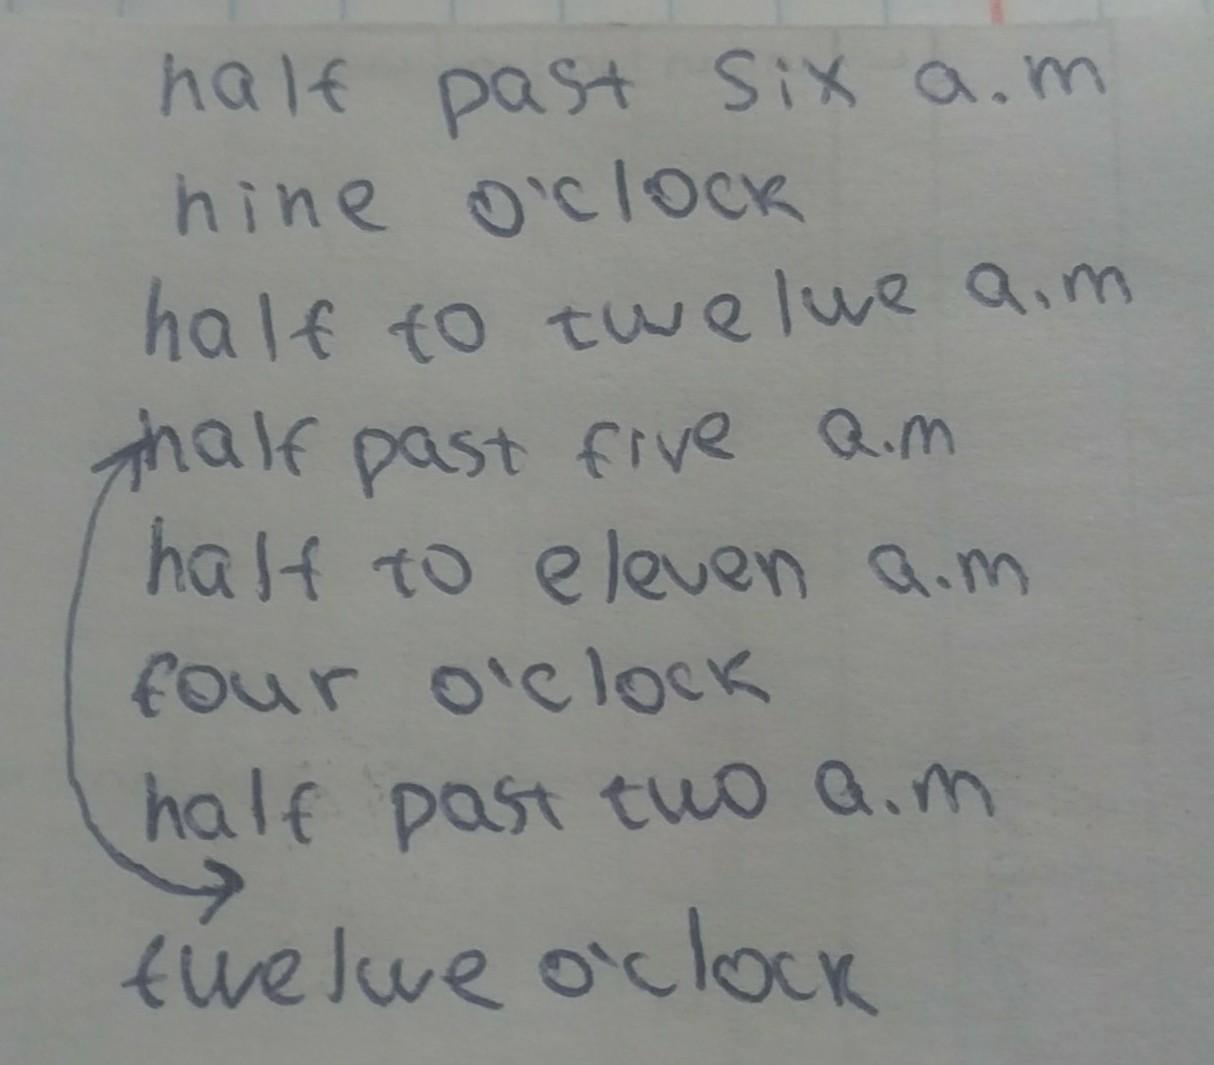 half past six a.m
nine o'clock
half to twelwe a.m
half past five a.m
half to eleven a.m
four o'clock
half past two a.m
twelwe o'clock